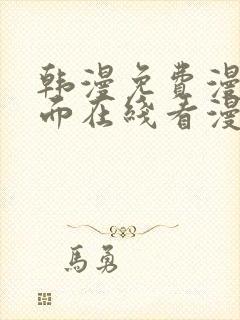 韩漫免费漫
而在线看漫
馬勇